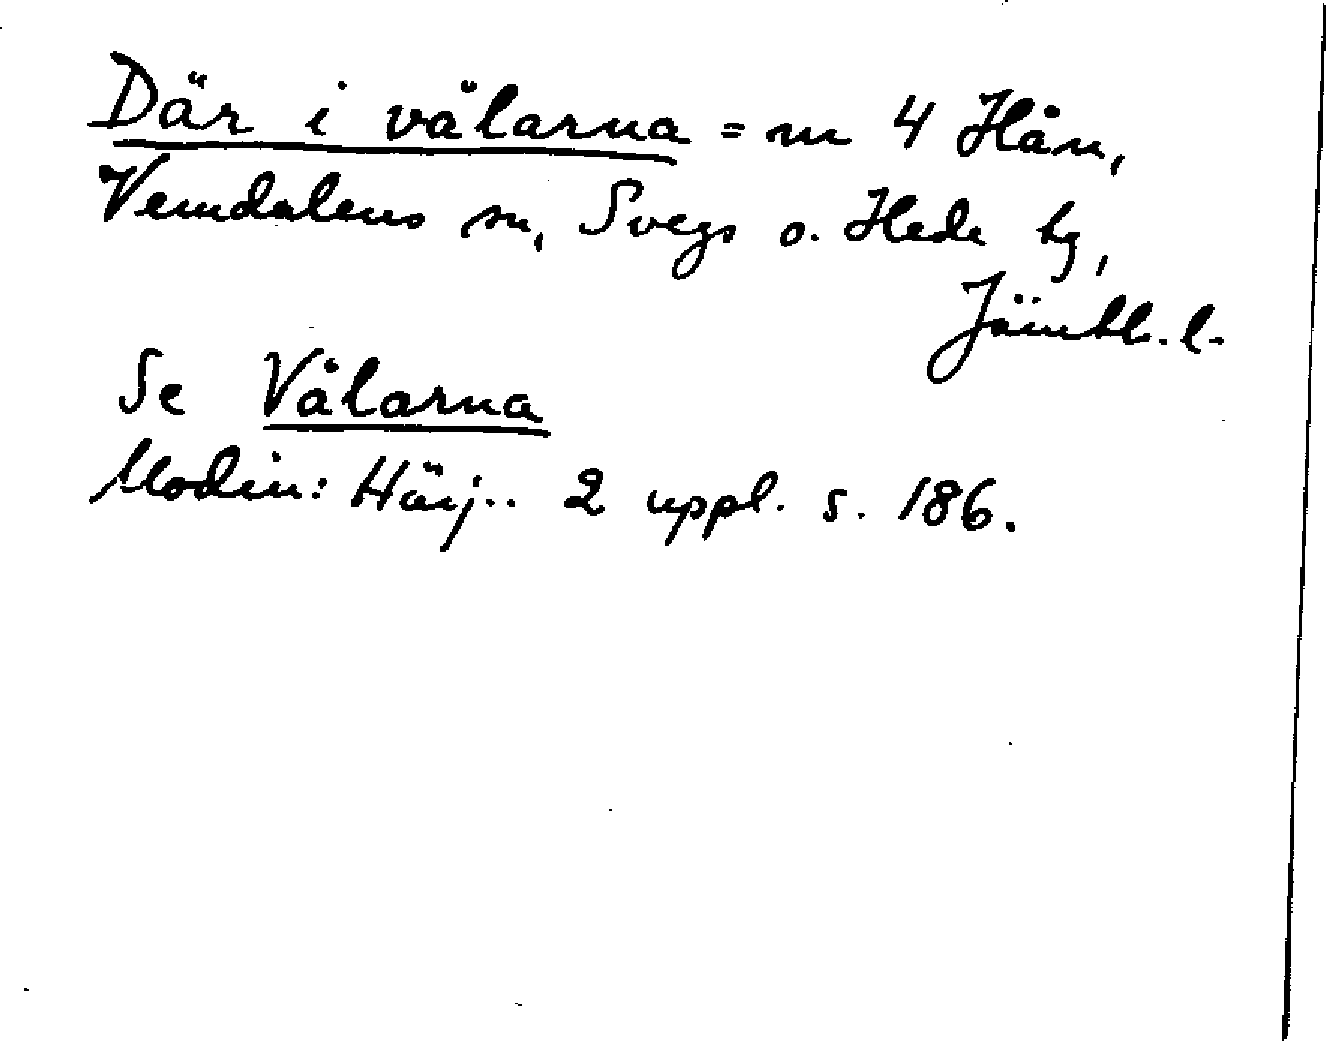 Där i välarna = nr 4 Hån,
Vemdalens sn, Svegs o. Hede tg,
Jämtl. l.
Se Vålarna
Modin: Härj.. 2 uppl. s. 186.